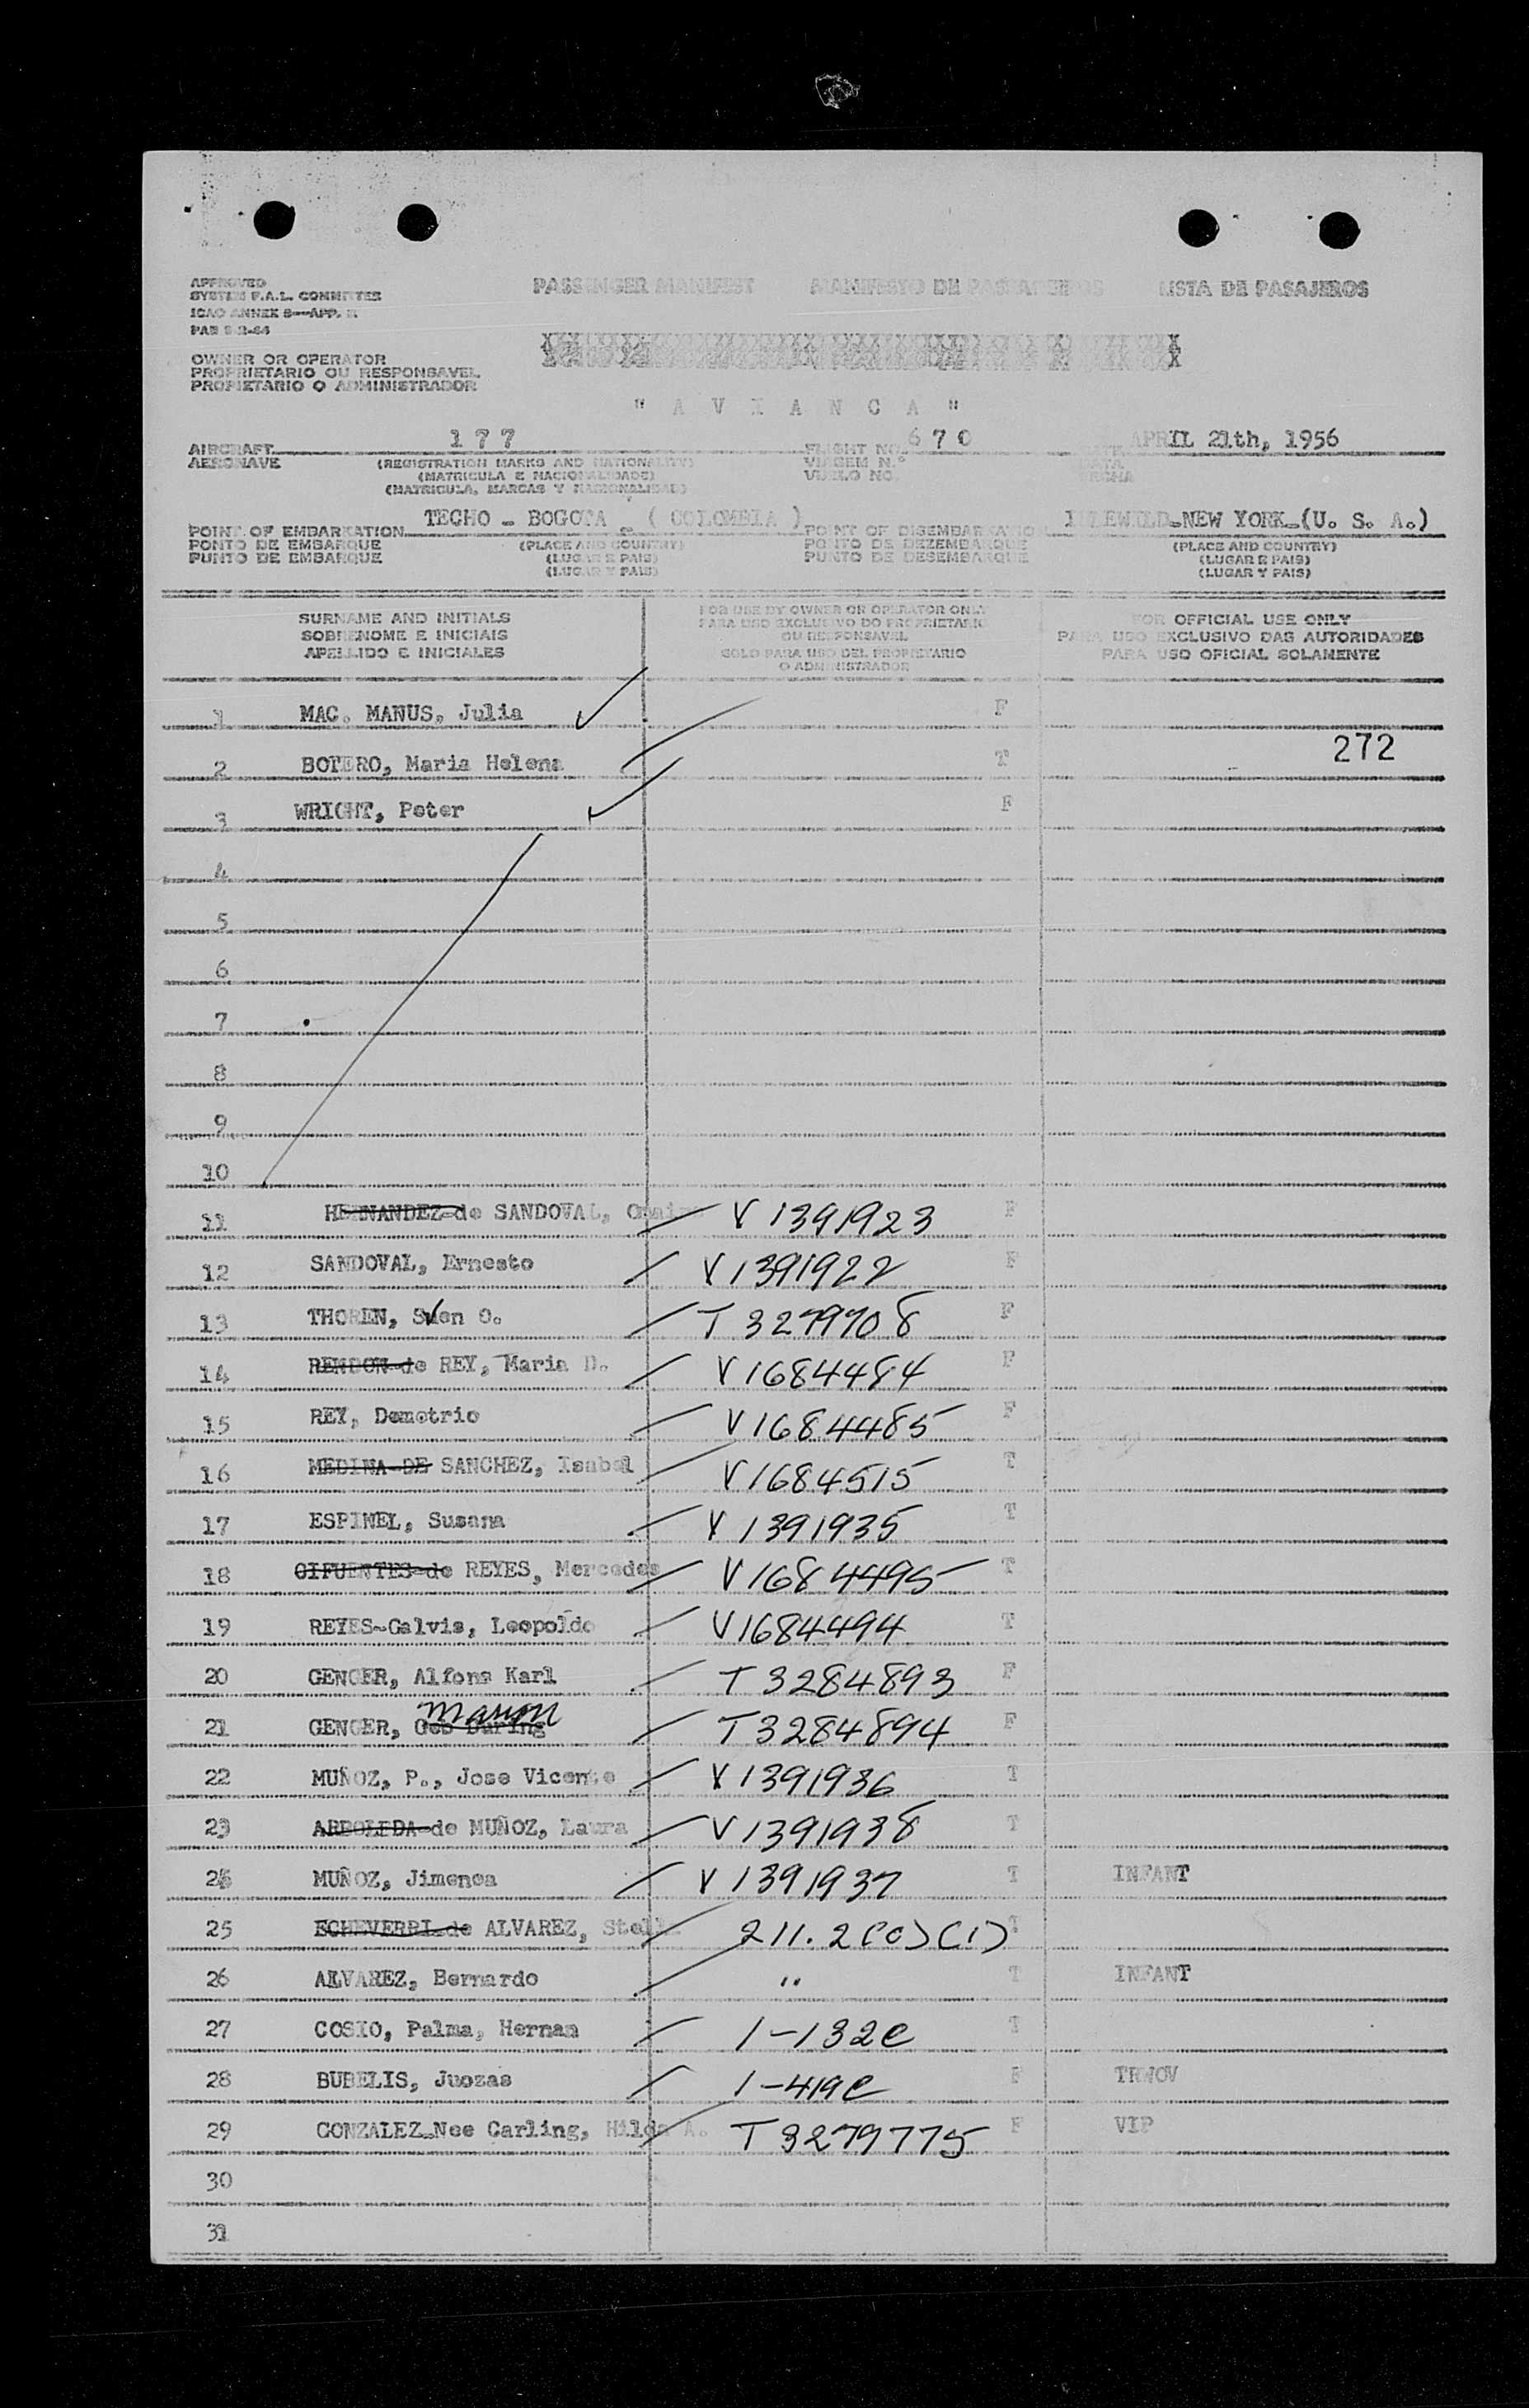 APPROVED
SYSTEM F.A.L. COMMITTEE
ICAO ANNEX
PASSENGER MANIFEST MANIFESTO DE PASSAGEIROS LISTA DE PASAJEROS
OWNER OR OPERATOR
PROPRIETARIO OU RESPONSAVEL
PROPIETARIO O ADMINISTRADOR
" A V I A N C A "
AIRCRAFT 177 FLIGHT NO. 670 APRIL 21th, 1956
AERONAVE (REGISTRATION MARKS AND NATIONALITY) VIAGEM N.º
(MATRICULA E NACIONALIDADE) VUELO NO.
(MATRICULA, MARCAS Y NACIONALIDAD)
POINT OF EMBARKATION TECHO - BOGOTA - ( COLOMBIA ) POINT OF DISEMBARKATION IDLEWILD-NEW YORK-(U. S. A.)
PONTO DE EMBARQUE (PLACE AND COUNTRY) PONTO DE DEZEMBARQUE (PLACE AND COUNTRY)
PUNTO DE EMBARQUE (LUGAR E PAIS) PUNTO DE DESEMBARQUE (LUGAR E PAIS)
(LUGAR Y PAIS) (LUGAR Y PAIS)
SURNAME AND INITIALS FOR USE BY OWNER OR OPERATOR ONLY FOR OFFICIAL USE ONLY
SOBRENOME E INICIAIS PARA USO EXCLUSIVO DO PROPRIETARIO OU RESPONSAVEL PARA USO EXCLUSIVO DAS AUTORIDADES
APELLIDO E INICIALES SOLO PARA USO DEL PROPIETARIO O ADMINISTRADOR PARA USO OFICIAL SOLAMENTE
1 MAC. MANUS, Julia F
272
2 BOTERO, Maria Helena T
3 WRIGHT, Peter F
4
5
6
7
8
9
10
11 HERNANDEZ-de SANDOVAL, V 1391923 F
12 SANDOVAL, Ernesto V 1391922 F
13 THOREN, Sven O. T 3279708 F
14 RENDON-de REY, Maria D. V 1684484 F
15 REY, Demetrio V 1684485 F
16 MEDINA-DE SANCHEZ, Isabel V 1684515 T
17 ESPINEL, Susana V 1391935 T
18 CIFUENTES-de REYES, Mercedes V 1684495 T
19 REYES-Galvis, Leopoldo V 1684494 T
20 GENGER, Alfons Karl T 3284893 F
21 GENGER, Marion T 3284894 F
22 MUÑOZ, P., Jose Vicente V 1391936 T
23 ARBOLEDA-de MUÑOZ, Laura V 1391938 T
24 MUÑOZ, Jimenea V 1391937 T INFANT
25 ECHEVERRI-de ALVAREZ, Stella 211.2(c)(1) T
26 ALVAREZ, Bernardo " T INFANT
27 COSIO, Palma, Hernan 1-132c T
28 BUBELIS, Juozas 1-419c F TRWOV
29 GONZALEZ-Nee Carling, Hilda A. T 3279775 F VIP
30
31